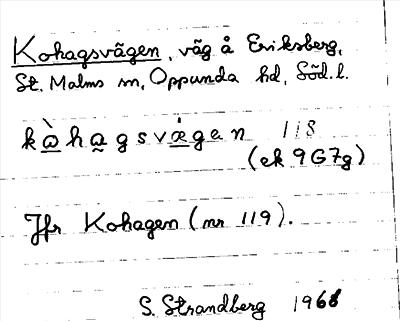 Kohagsvägen, väg å Eriksberg,
St. Malms sn, Oppunda hd, Söd. l.
kὼhαgsvǽgan 118
(ek 9G7g)
Jfr Kohagen (nr 119).
S. Strandberg 1968